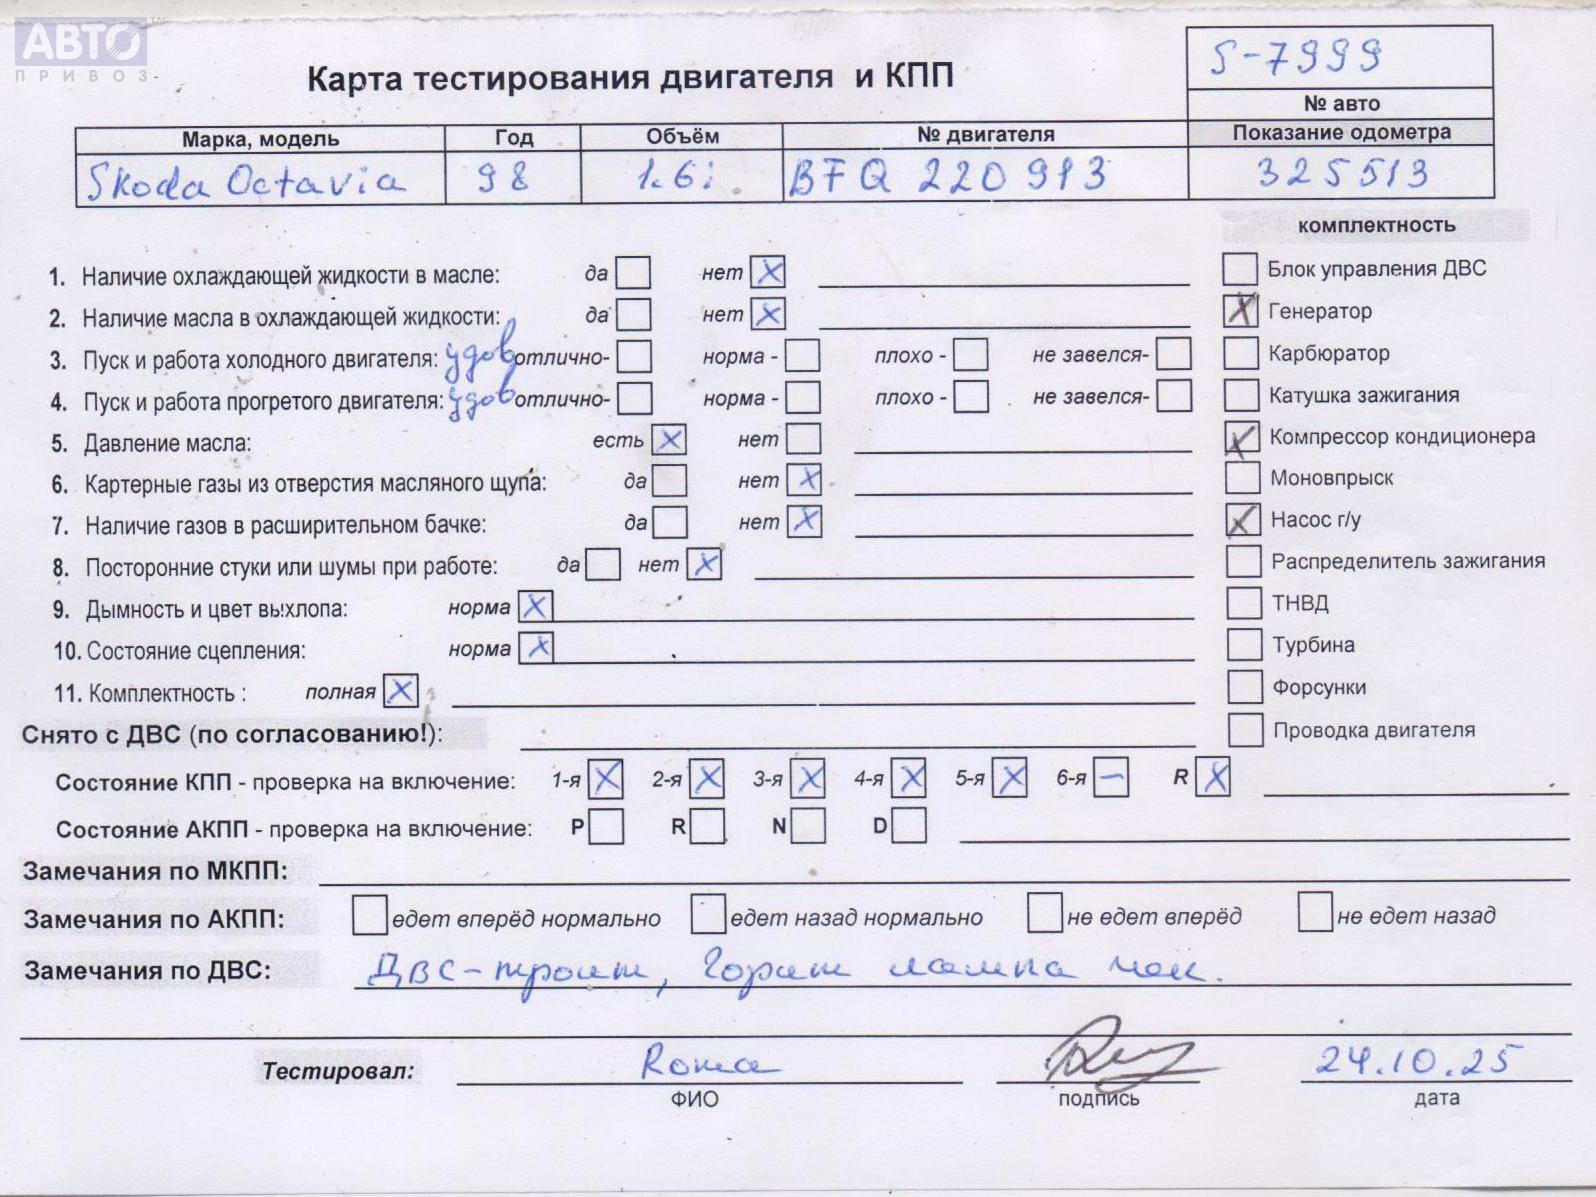 АВТО ТМ
ПРИВОЗ
Карта тестирования двигателя и КПП
S-7999
№ авто
Марка, модель Год Объём № двигателя Показание одометра
Skoda Octavia 98 1.6i BFQ 220 913 325513
комплектность
1. Наличие охлаждающей жидкости в масле: да нет X
2. Наличие масла в охлаждающей жидкости: да нет X
3. Пуск и работа холодного двигателя: удов отлично- норма - плохо - не завелся-
4. Пуск и работа прогретого двигателя: удов отлично- норма - плохо - не завелся-
5. Давление масла: есть X нет
6. Картерные газы из отверстия масляного щупа: да нет X
7. Наличие газов в расширительном бачке: да нет X
8. Посторонние стуки или шумы при работе: да нет X
9. Дымность и цвет выхлопа: норма X
10. Состояние сцепления: норма X
11. Комплектность : полная X
Блок управления ДВС
X Генератор
Карбюратор
Катушка зажигания
X Компрессор кондиционера
Моновпрыск
X Насос г/у
Распределитель зажигания
ТНВД
Турбина
Форсунки
Проводка двигателя
Снято с ДВС (по согласованию!):
Состояние КПП - проверка на включение: 1-я X 2-я X 3-я X 4-я X 5-я X 6-я – R X
Состояние АКПП - проверка на включение: P R N D
Замечания по МКПП:
Замечания по АКПП: едет вперёд нормально едет назад нормально не едет вперёд не едет назад
Замечания по ДВС: ДВС-троит, Горит лампа чек.
Тестировал: Рома 24.10.25
ФИО подпись дата